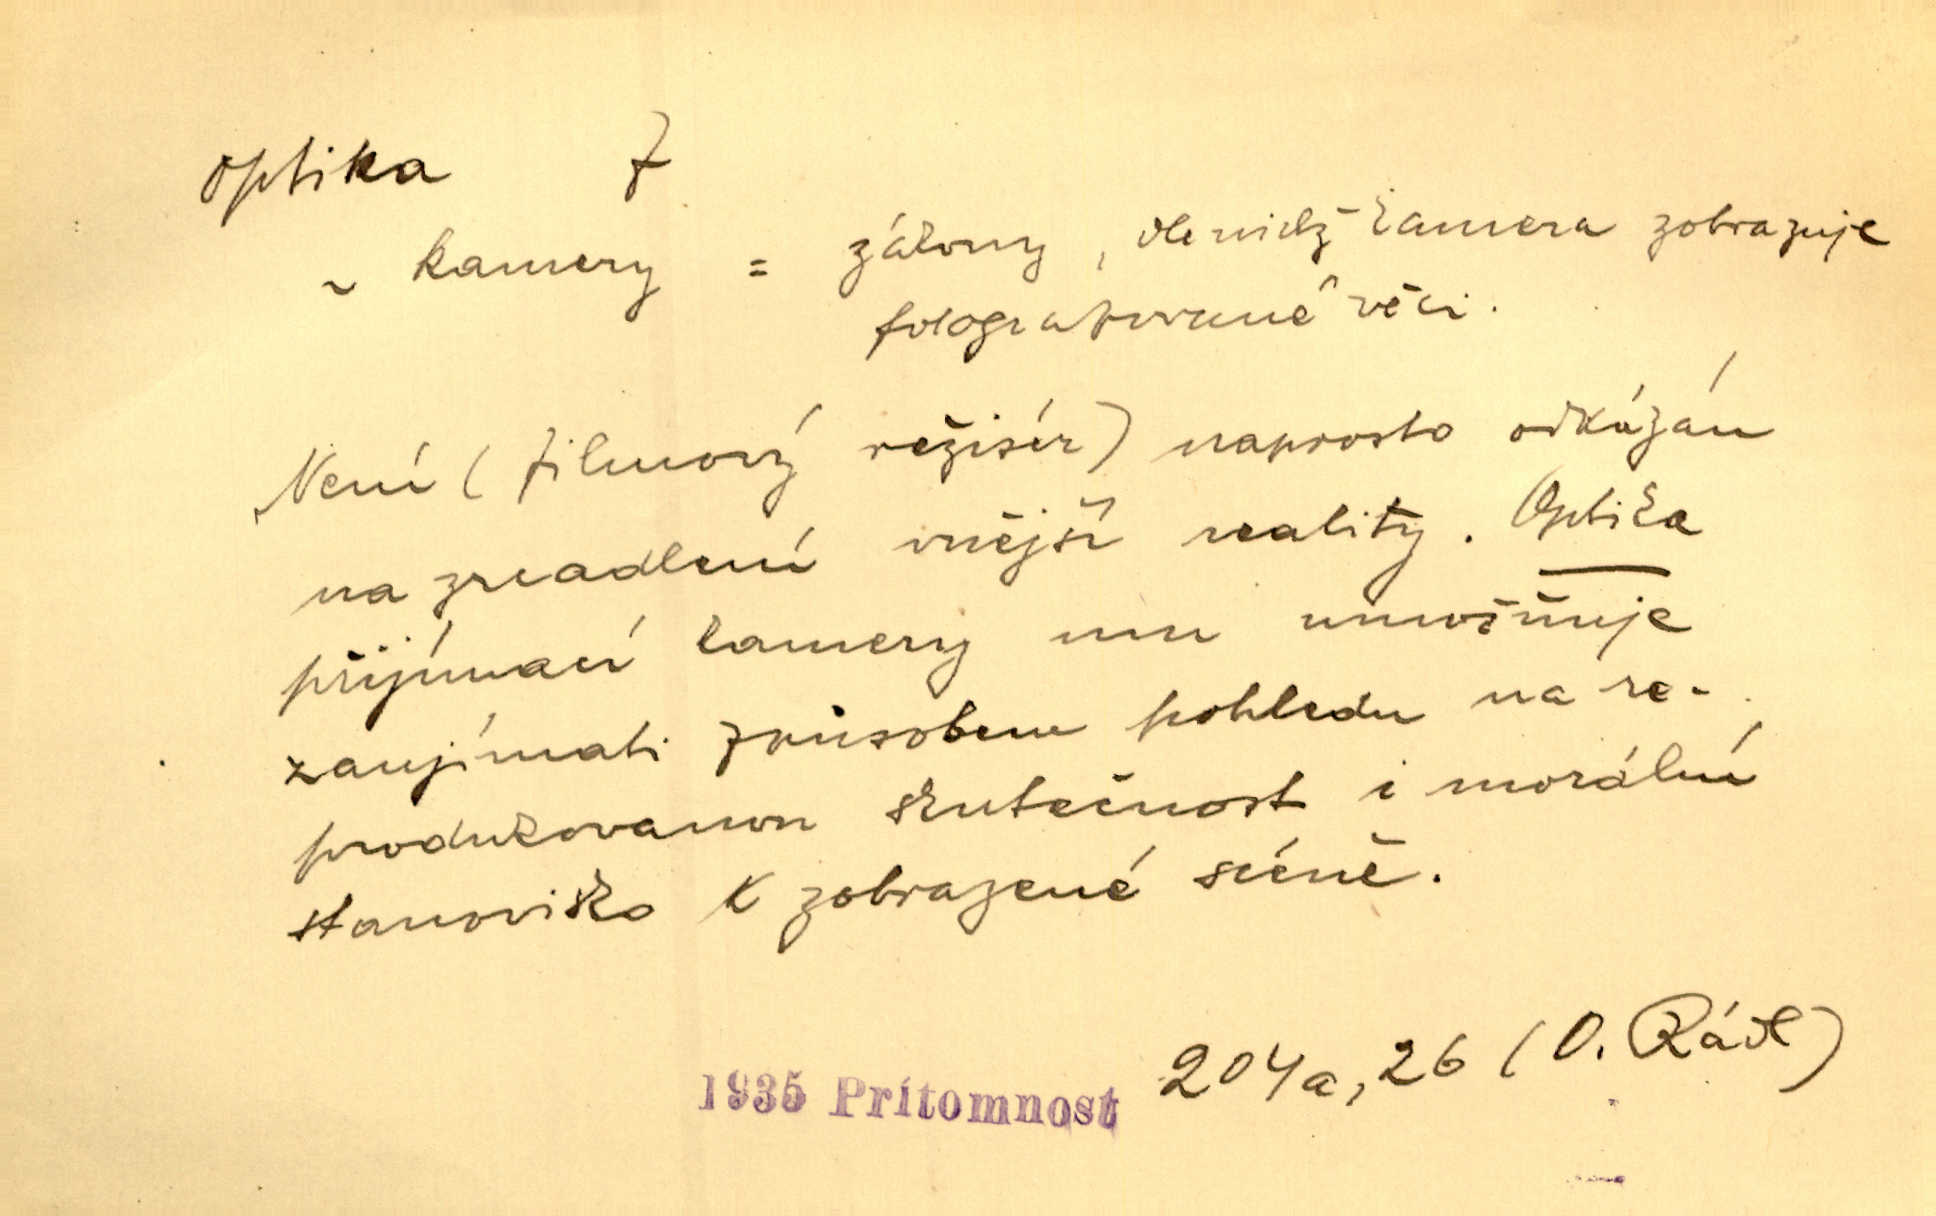 optika f
~ kamery = zákony, dle nichž kamera zobrazuje
fotografované věci.
Není (filmový režisér) naprosto odkázán
na zrcadlení vnější reality. Optika
přijímací kamery mu umožňuje
zaujímati způsobem pohledu na re-
produkovanou skutečnost i morální
stanovisko k zobrazené scéně.
1935 Prítomnost 204a, 26 (O. Rádl)